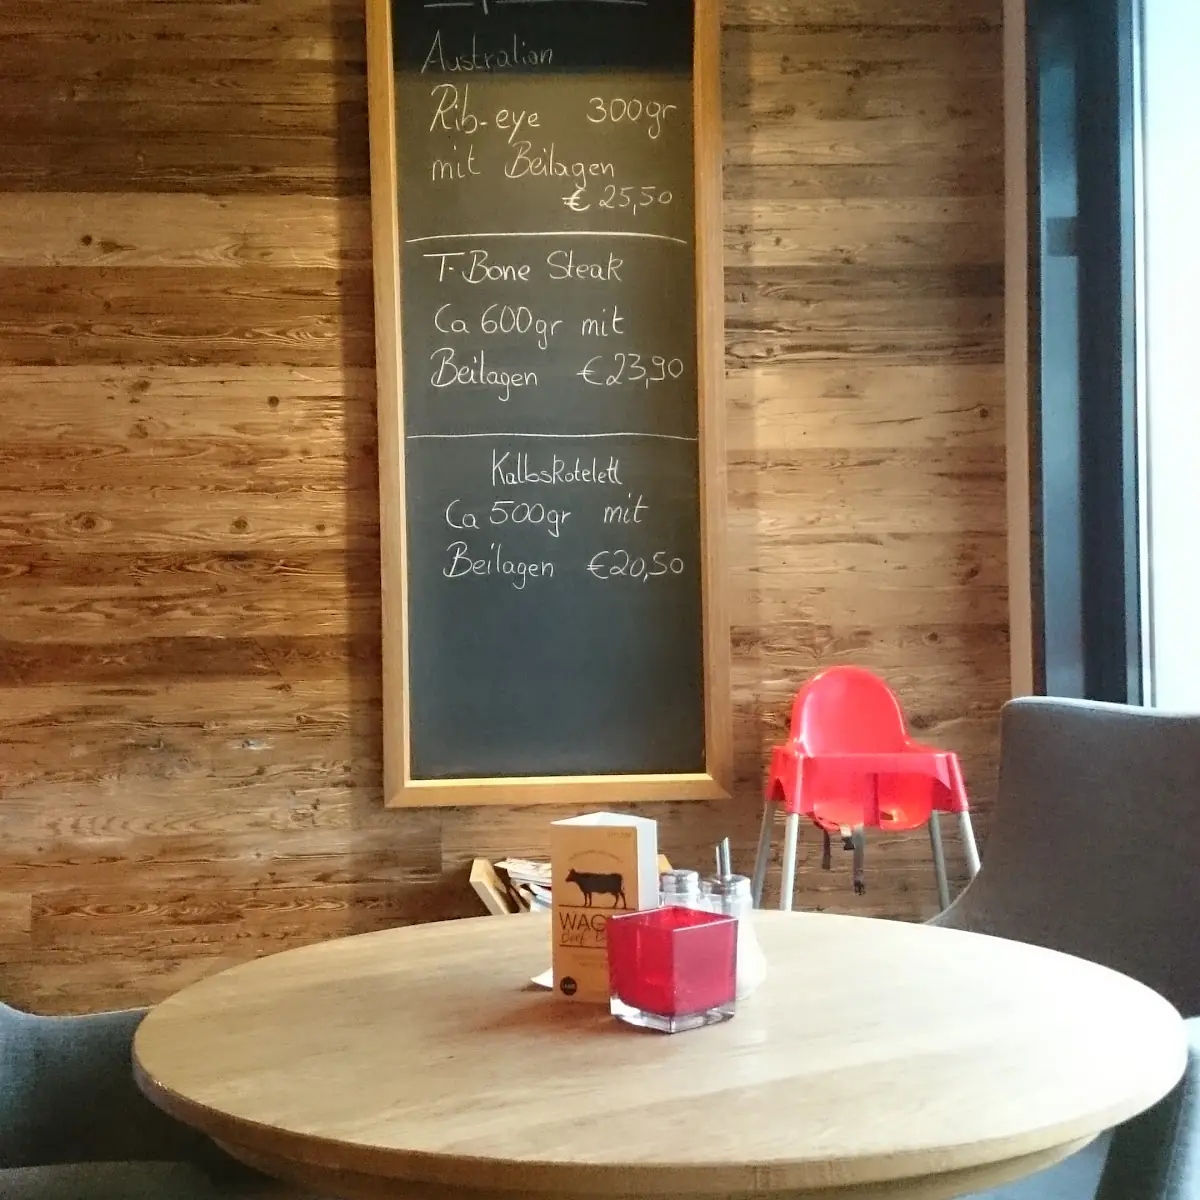 Australian
Rib-eye 300gr
mit Beilagen
€ 25,50
T-Bone Steak
Ca 600gr mit
Beilagen €23,90
Kalbskotelett
Ca 500gr mit
Beilagen €20,50